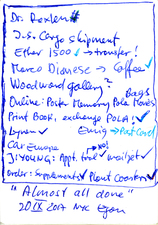 Dr. Roxlem
J.S. Cargo shipment
Ether 1500 ✓→ transfer!
Marco Dionese → Coffee ✓
Woodward gallery?
Bags
Online: Poster Memory Pola Movies
Print Book, exchange POLA! ✓
Lynn ✓ Emig → Post Card
Car Europe
JIYOUNG: Appt. tool ✓
Order: Supplements ✓ Plant Cookies
"Almost all done"
20 IX 2017 NYC Egon